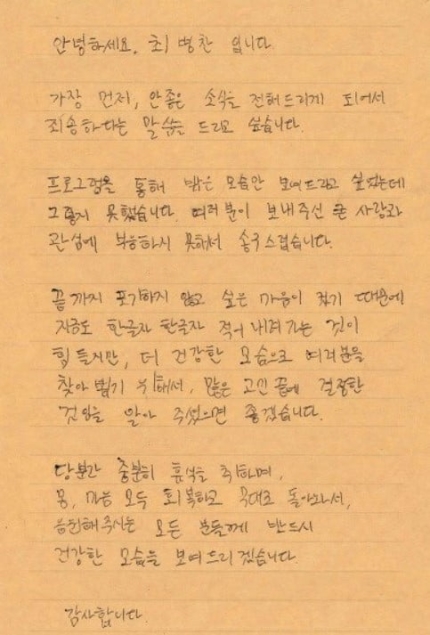 안녕하세요. 최병찬 입니다
가장 먼저, 안좋은 소식을 전해드리게 되어서
죄송하다는 말씀을 드리고 싶습니다.
프로그램을 통해 밝은 모습만 보여드리고 싶었는데
그렇지 못했습니다. 여러분이 보내주신 큰 사랑과
관심에 부응하지 못해서 송구스럽습니다.
끝까지 포기하지 않고 싶은 마음이 컸기 때문에
지금도 한글자 한글자 적어 내려가는 것이
힘들지만, 더 건강한 모습으로 여러분을
찾아 뵙기 위해서, 많은 고민 끝에 결정한
것임을 알아 주셨으면 좋겠습니다.
당분간 충분히 휴식을 취하며,
몸, 마음 모두 회복하고 무대로 돌아와서,
응원해주시는 모든 분들께 반드시
건강한 모습을 보여드리겠습니다.
감사합니다.